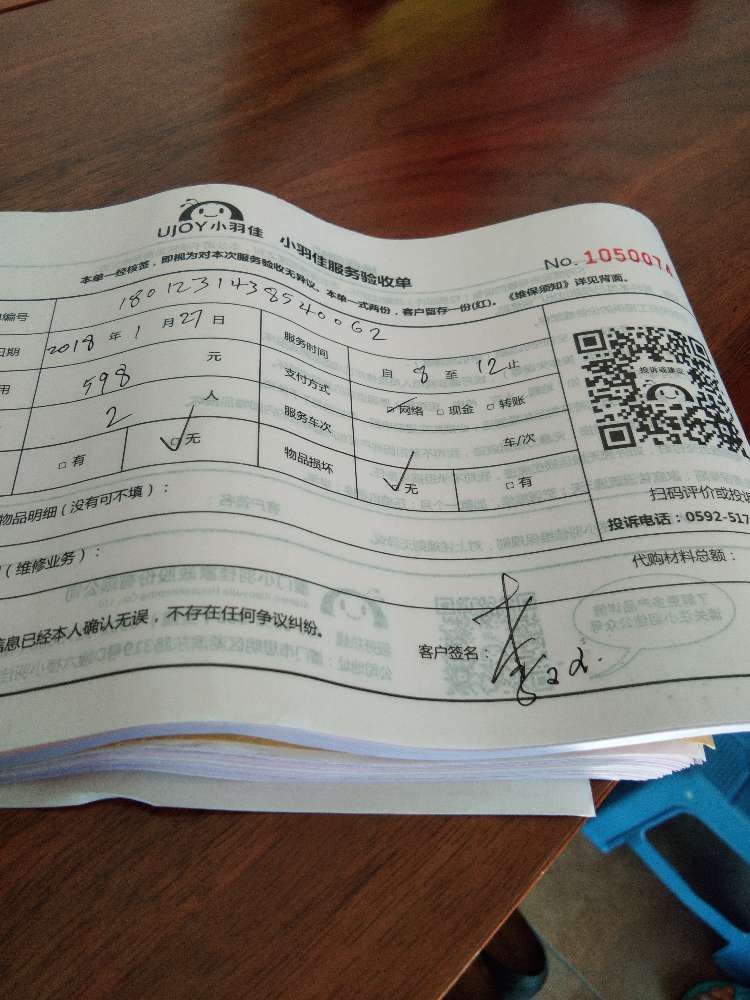 UJOY小羽佳 小羽佳服务验收单
No. 1050074
本单一经核签,即视为对本次服务验收无异议。本单一式两份,客户留存一份(红)。《维保须知》详见背面。
编号 1801231438540062
日期 2018年1月27日 服务时间 自8至12止
用 598元 支付方式 网络 现金 转账
2人 服务车次 车/次
有 无 物品损坏 无 有
投诉或建议
扫码评价或投诉
投诉电话:0592-517
物品明细(没有可不填):
(维修业务): 代购材料总额:
信息已经本人确认无误,不存在任何争议纠纷。 客户签名: